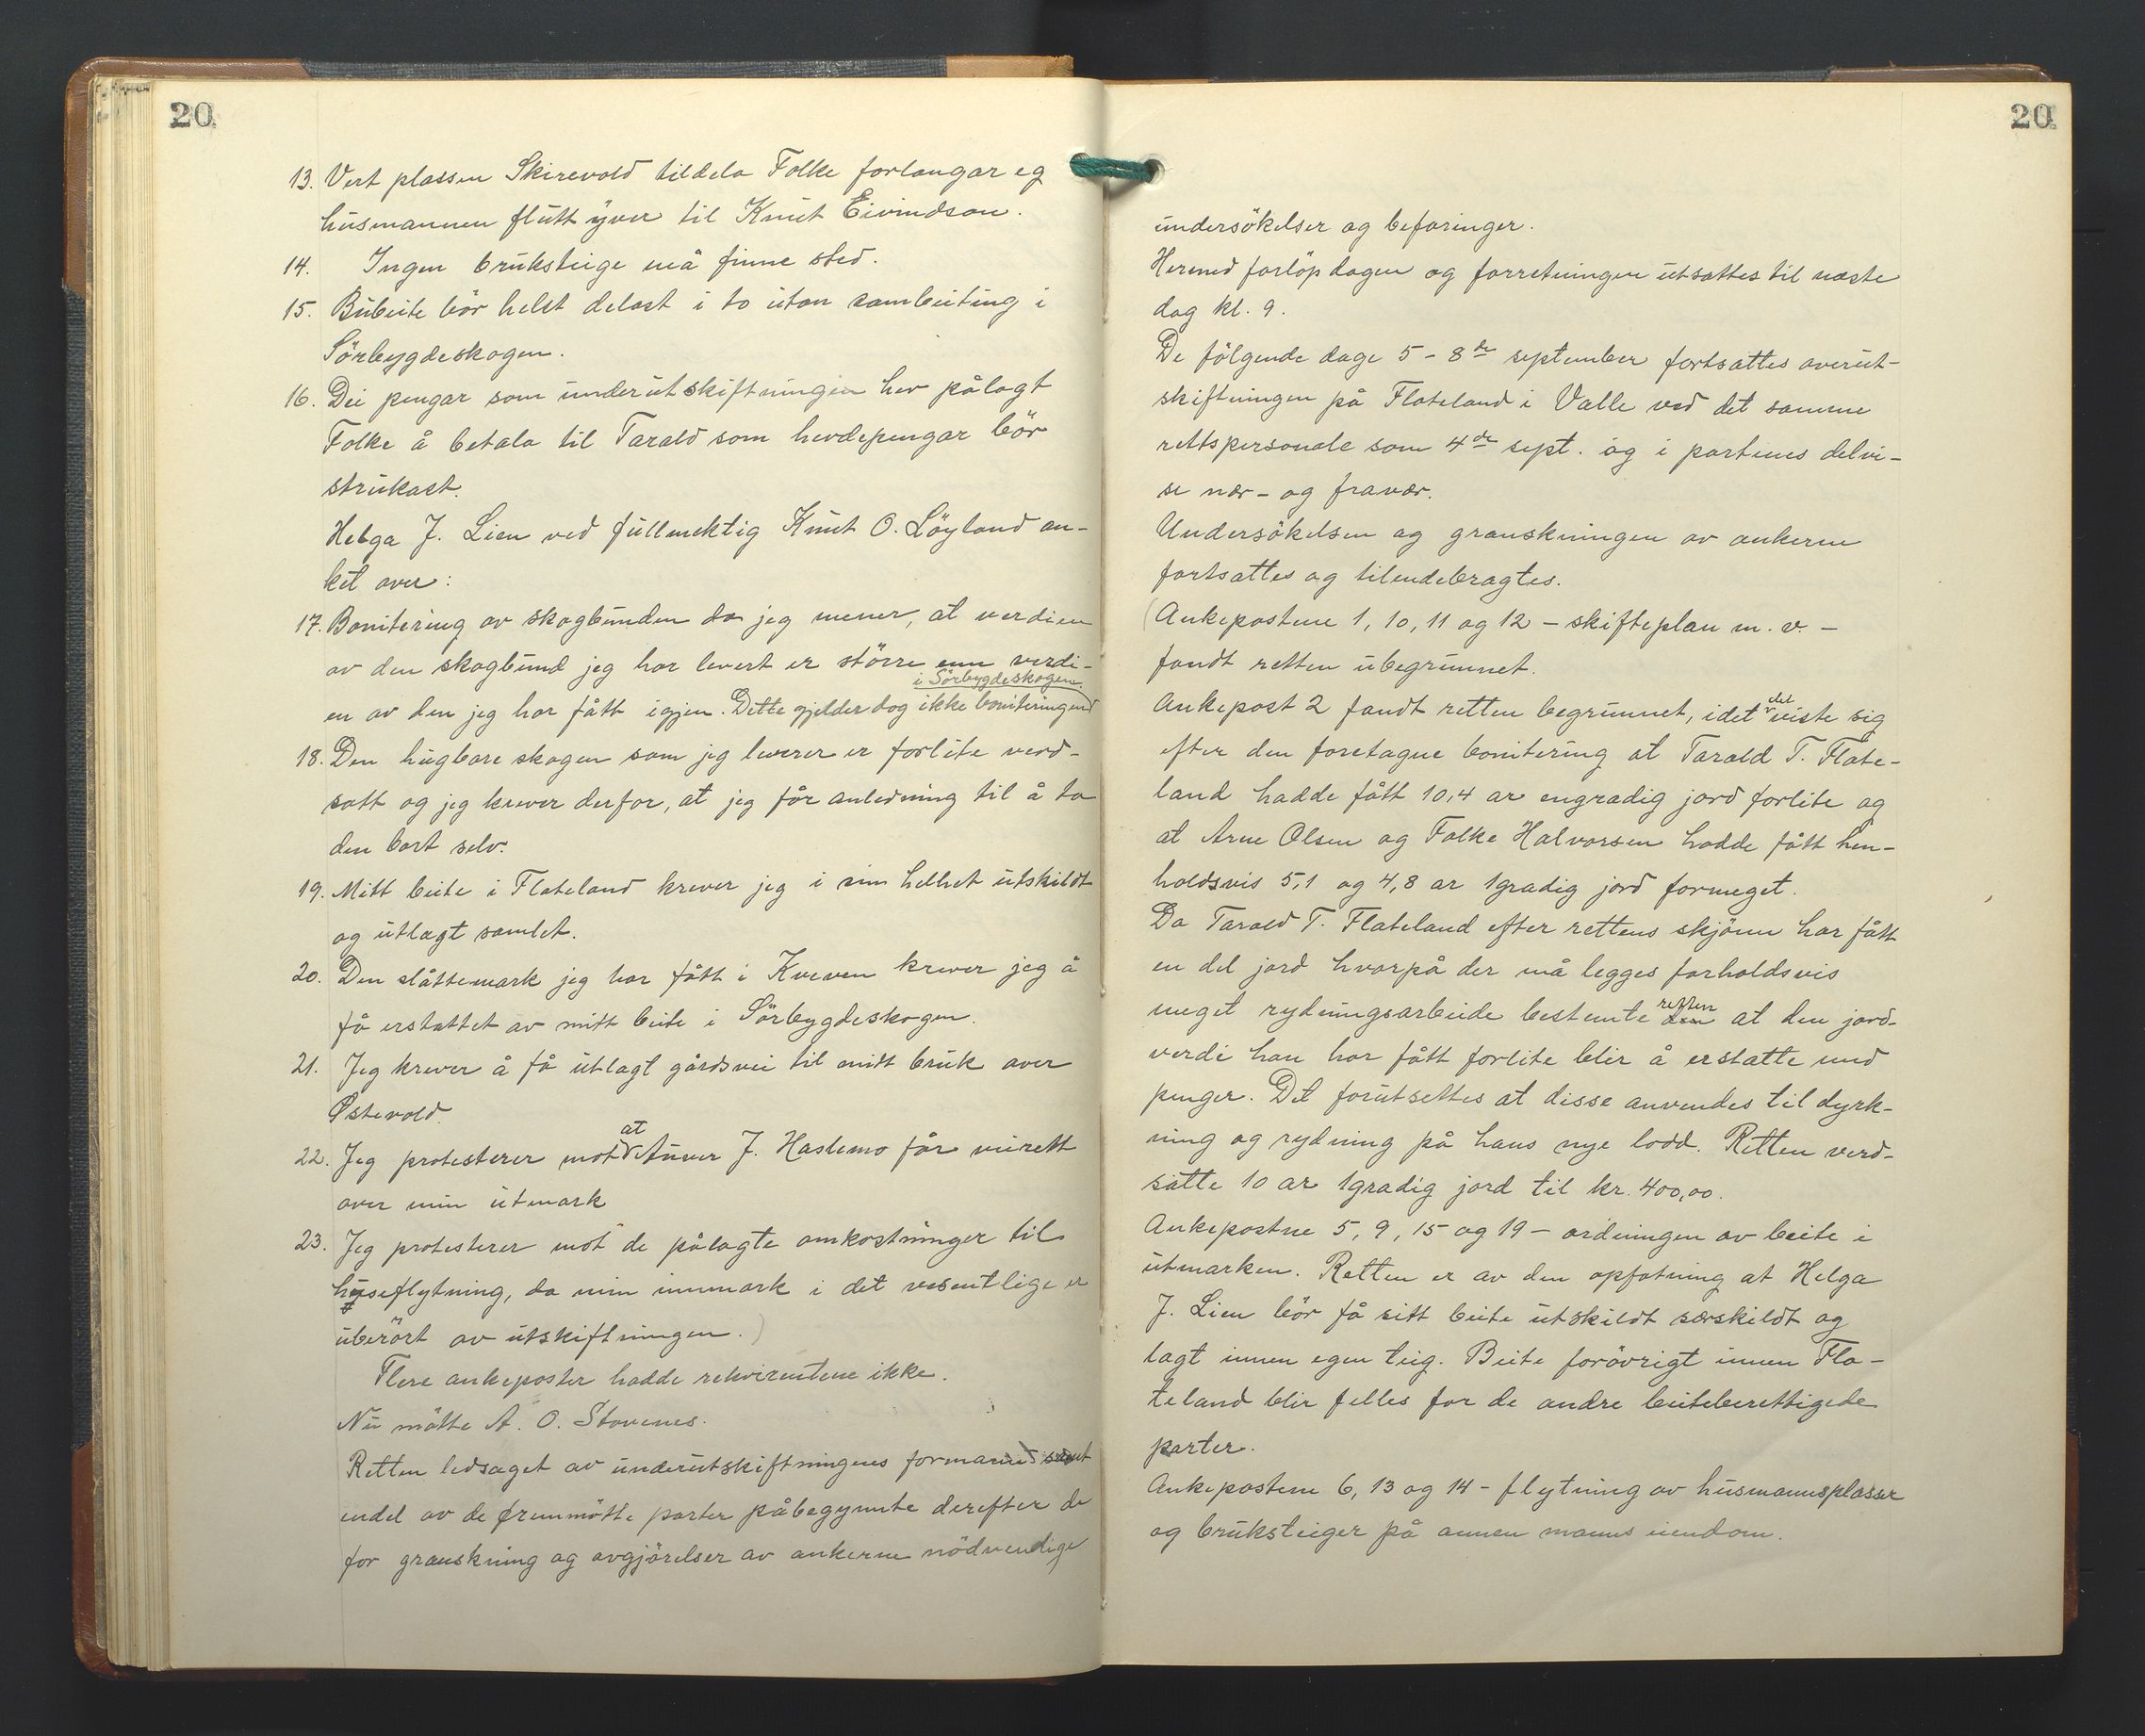 20.
13. Vert plassen Skirevold tildela Folke forlangar eg
husmannen flutt yver til Knut Eivindson.
14. Ingen bruksteige må finne sted.
15. Bubeite bör helst delast i to utan sambeiting i
Sörbygdeskogen.
16. Dei pengar som underutskiftningen hev pålagt
Folke å betala til Tarald som hevdepengar bör
strukast.
Helga J. Lien ved fullmektig Knut O. Löyland an-
ket over:
17. Bonitering av skogbunden da jeg mener, at verdien
av den skogbund jeg har levert er större enn verdi-
en av den jeg har fått igjen. Dette gjelder dog ikke boniteringen i Sörbygdeskogen.
18. Den hugbare skogen som jeg leverer er forlite verd-
satt og jeg krever derfor, at jeg får anledning til å ta
den bort selv.
19. Mitt beite i Flateland krever jeg i sin helhet utskildt
og utlagt samlet.
20. Den slåttemark jeg har fått i Kveven krever jeg å
få erstattet av mitt beite i Sörbygdeskogen.
21. Jeg krever å få utlagt gårdsvei til mitt bruk over
Østevold.
22. Jeg protesterer mot at Anver J. Haslemo får veirett
over min utmark
23. Jeg protesterer mot de pålagte omkostninger til
huseflytning, da min innmark i det vesentlige er
uberört av utskiftningen.)
Flere ankeposter hadde rekvirentene ikke.
Nu mötte A. O. Stovenes.
Retten ledsaget av underutskiftningens formann samt
endel av de fremmötte parter påbegynnte derefter de
for granskning og avgjörelser av ankerne nödvendige
20.
undersökelser og befaringer.
Hermed forlöp dagen og forretningen utsattes til næste
dag kl. 9.
De fölgende dage 5 - 8de september fortsattes overut-
skiftningen på Flateland i Valle ved det samme
rettspersonale som 4de sept. og i partenes delvi-
se nær- og fravær.
Undersökelsen og granskningen av ankerne
fortsattes og tilendebragtes.
(Ankepostene 1, 10, 11 og 12 - skifteplan m. v. -
fandt retten ubegrunnet.
Ankepost 2 fandt retten begrunnet, idet det viste sig
efter den foretagne bonitering at Tarald T. Flate-
land hadde fått 10,4 ar engradig jord forlite og
at Arne Olsen og Folke Halvorsen hadde fått hen-
holdsvis 5,1 og 4,8 ar 1gradig jord formeget.
Da Tarald T. Flateland efter rettens skjönn har fått
en del jord hvorpå der må legges forholdsvis
meget rydningsarbeide bestemte den retten at den jord-
verdi han har fått forlite blir å erstatte med
penger. Det forutsettes at disse anvendes til dyrk-
ning og rydning på hans nye lodd. Retten verd-
satte 10 ar 1gradig jord til kr. 400,00.
Ankepostne 5, 9, 15 og 19 - ordningen av beite i
utmarken. Retten er av den opfatning at Helga
J. Lien bör få sitt beite utskildt særskildt og
lagt innen egen teig. Beite forövrigt innen Fla-
teland blir felles for de andre beiteberettigede
parter.
Ankepostene 6, 13 og 14 - flytning av husmannsplasser
og bruksteiger på annen manns eiendom.